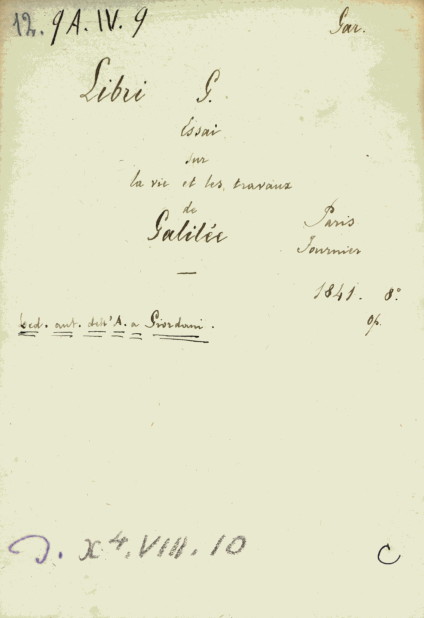 12. 9 A. IV. 9 Gar.
Libri G.
Essai
sur
la vie et les travaux
de
Galilée
Paris
Fournier
1841. 8°
op.
Ded. aut. dell'A. a Giordani.
X⁴. VIII. 10
C